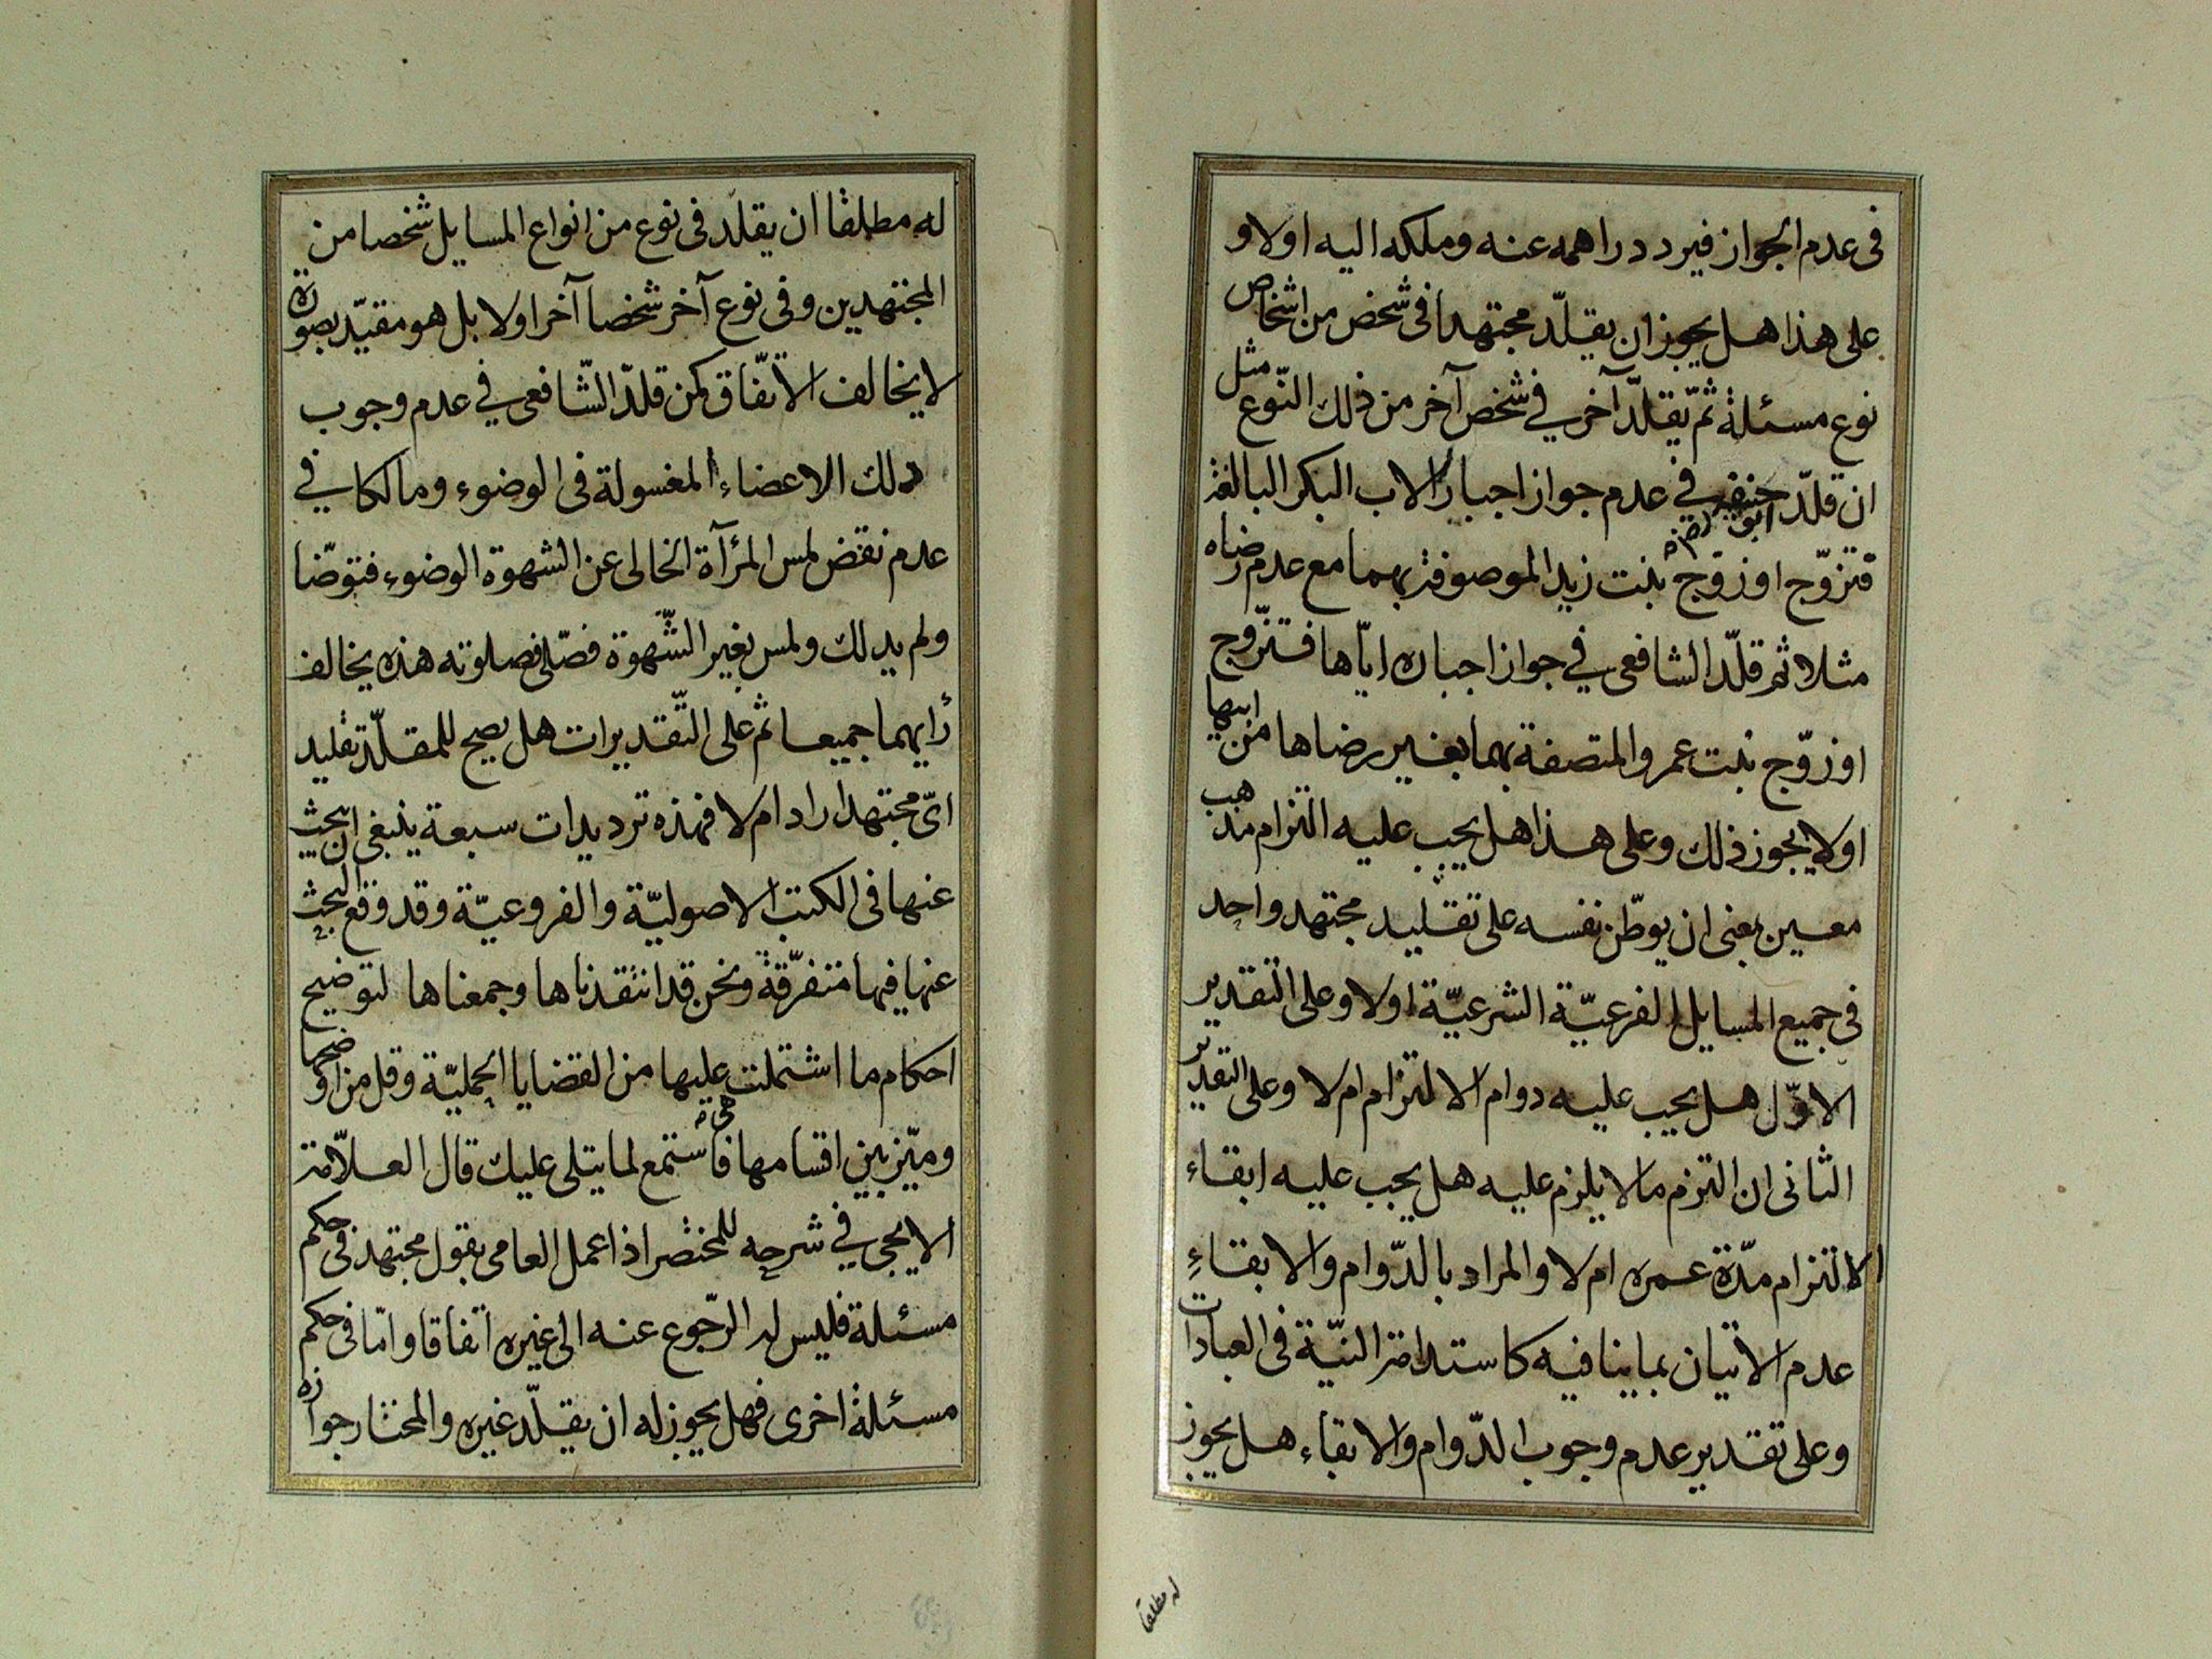 فى عدم الجواز فيرد دراهمه عنه وملكه اليه اولا و
على هذا هل يجوز ان يقلّد مجتهدا فى شخص من اشخاص
نوع مسئلة ثمّ يقلّد آخر في شخص آخر من ذلك النّوع مثل
ان قلّد ابو حنيفه رض في عدم جواز اجبار الاب البكر البالغة
فتزوّج او زوّج بنت زيد الموصوفة بهما مع عدم رضاه
مثلا ثم قلّد الشافعى في جواز اجباره ايّاها فتزّوج
او زوّج بنت عمرو المتصفة بهما بغير رضاها من ابيها
اولا يجوز ذلك وعلى هذا هل يجب عليه التزام مذهب
معين بمعنى ان يوطّن نفسه على تقليد مجتهد واحد
فى جميع المسايل الفرعيّة الشرعيّة اولا وعلى التقدير
الاوّل هل يجب عليه دوام الالتزام ام لا وعلى التقدير
الثانى ان التزم مالا يلزم عليه هل يجب عليه ابقاء
الالتزام مدّة عمره ام لا والمراد بالدّوام والابقاءِ
عدم الاتيان بما ينافيه كاستدامة النيّة فى العبادات
وعلى تقدير عدم وجوب الدّوام والابقاء هل يجوز
له مطلقا
له مطلقا ان يقلّد فى نوع من انواع المسايل شخصا من
المجتهدين وفى نوع آخر شخصا آخر اولا بل هو مقيّد بصورة
لا يخالف الاتّفاق كمن قلّد الشّافعى في عدم وجوب
دلك الاعضاء المغسولة فى الوضوء ومالكا في
عدم نقض لمس المرأة الخالى عن الشهوة الوضوء فتوضّا
ولم يدلك ولمس بغير الشّهوة فصّلى فصلوته هذه يخالف
رايهما جميعا ثم على التّقديرات هل يصح للمقلّد تقليد
اىّ مجتهد اراد ام لا فهذه ترديدات سبعة ينبغى ان يبحث
عنها فى الكتب الاصوليّة والفروعيّة وقد وقع البحث
عنها فيها متفرّقة ونحن قد انتقدناها وجمعناها لتوضيح
احكام ما اشتملت عليها من القضايا الحمليّة وقل من اوضحها
وميّز بين اقسامها فاستمع لما يتلى عليك قال العلاّمة
الايجى في شرحه للمختصر اذا عمل العامى بقول مجتهد فى حكم
مسئلة فليس له الرّجوع عنه الى غيره اتفاقا وامّا فى حكم
مسئلة اخرى فهل يجوز له ان يقلّد غيره والمختار جوازه